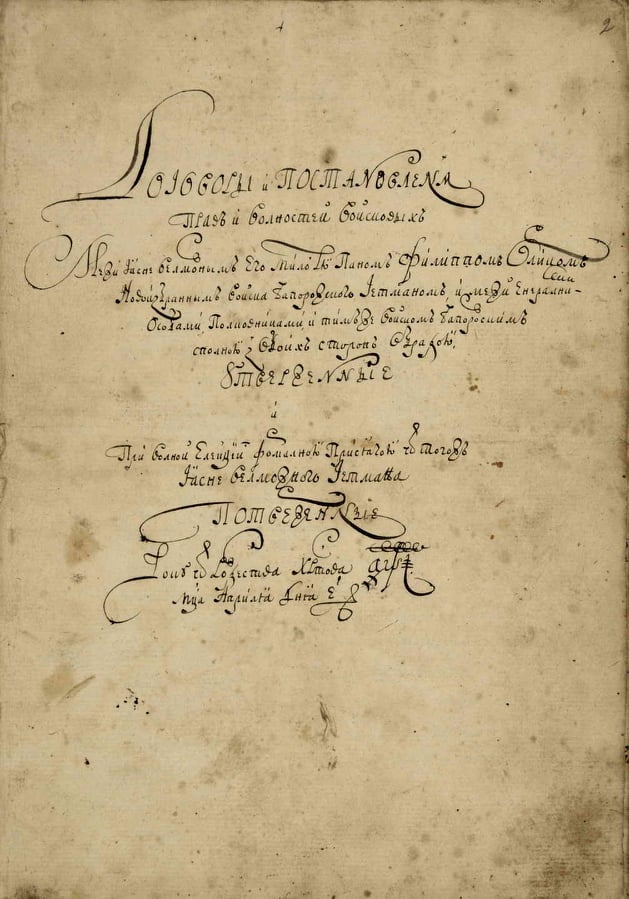 2
Договоры и Постановленѧ
Правъ и волностей войсковыхъ
Межи Ясне велможнымъ Его Милостю Паномъ Филиппомъ Орликомъ
Новоизбраннымъ войска Запорожского Гетманомъ, и межи Енералними
Особами Полковниками, и тимъ же войскомъ Запорозкимъ
сполною з обоихъ сторонъ обрадою
Утвержденныіе
и
При волной Елекціи формалною Присягою ѿ тогожъ
Ясне велможного Гетмана
Потверженныіе
Року ѿ Рождества Христова ҂аѱі
Мца Априлія дня е